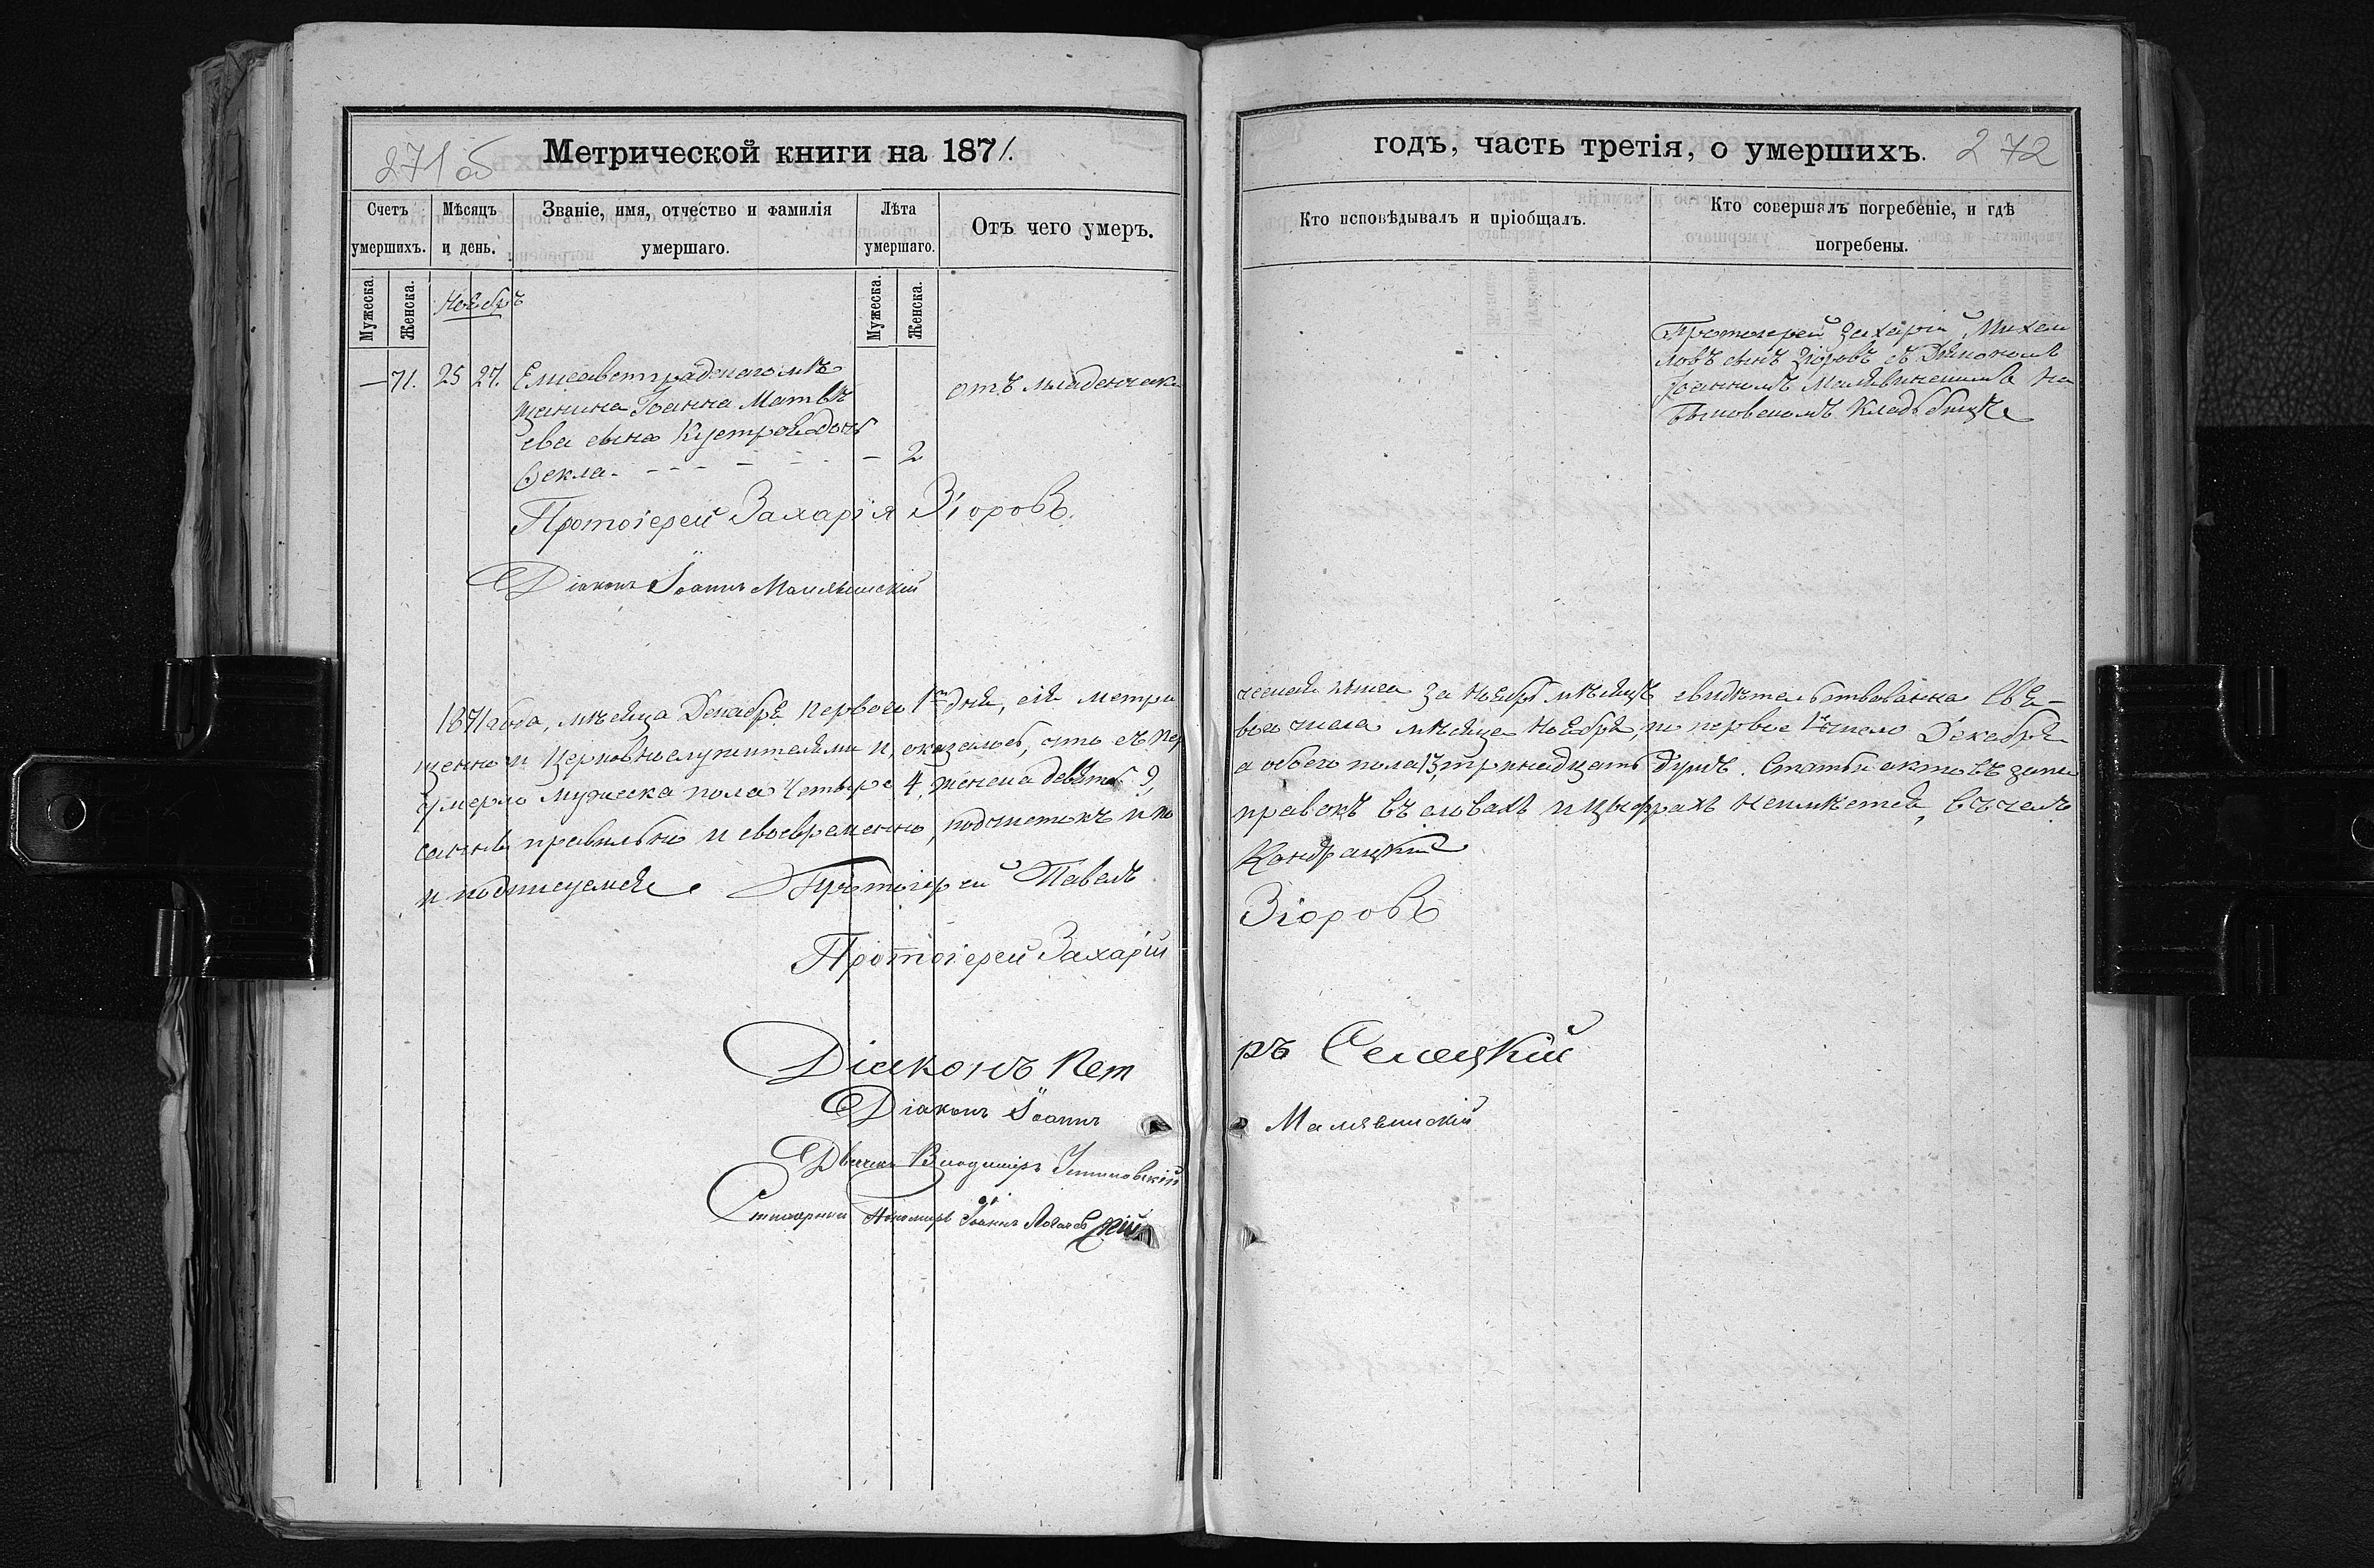 271 об
Метрической книги на 1871.
Счетъ умершихъ.
Мѣсяцъ и день.
Званіе, имя, отчество и фамилія умершаго.
Лѣта умершаго.
Отъ чего умеръ.
Мужеска.
Женска.
Мужеска.
Женска.
Ноябрь
— 71. 25 27. Елисаветградскаго мѣ
щанина Іоанна Матвѣ
ева сына дочь
Ѳекла - - - - — 2
отъ младенческ.
Протоіерей Захарія Зіоровъ.
Діаконъ Іоаннъ Малявинскій
1871 года, мѣсяца Декабря первого 1го дня, сія метри
щенно и Церковнослужителями и, оказалось, что съ пер
умерло мужеска пола четыре 4, женска девять 9,
санны правильно и своевременно, подчистокъ и по
и подписуемся Протоіерей Павелъ
Протоіерей Захарій
Діаконъ Пет
Діаконъ Іоаннъ
Дьячекъ Владиміръ
Стихарный Пономарь Іоаннъ
годъ, часть третія, о умершихъ.
272
Кто исповѣдывалъ и пріобщалъ.
Кто совершалъ погребеніе, и гдѣ
погребены.
Протоіерей Захарій Михаи
ловъ сынъ Зіоровъ съ Діакономъ
Іоанномъ Малявинскимъ на
Быковскомъ Кладбищѣ
ческая книга за Ноябрь мѣсяцъ свидѣтельствована Свя-
вого числа мѣсяца Ноября, по первое 1е число Декабря
а обоего пола 13, тринадцать душъ. Статьи актовъ запи
правокъ въ словахъ и цыфрахъ неимѣется, въ чемъ
Кондрацкій
Зіоровъ
ръ Селецкій
Малявинскій